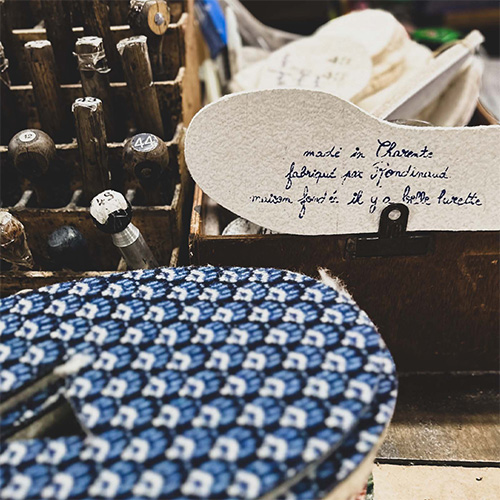 made in Charente
fabriqué par Rondinaud
maison fondée il y a belle lurette
12
44